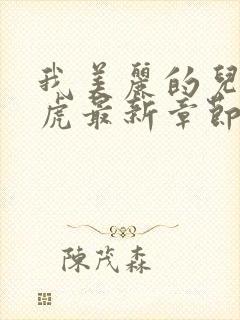 我美麗的兒
虎最新章節
陳茂森